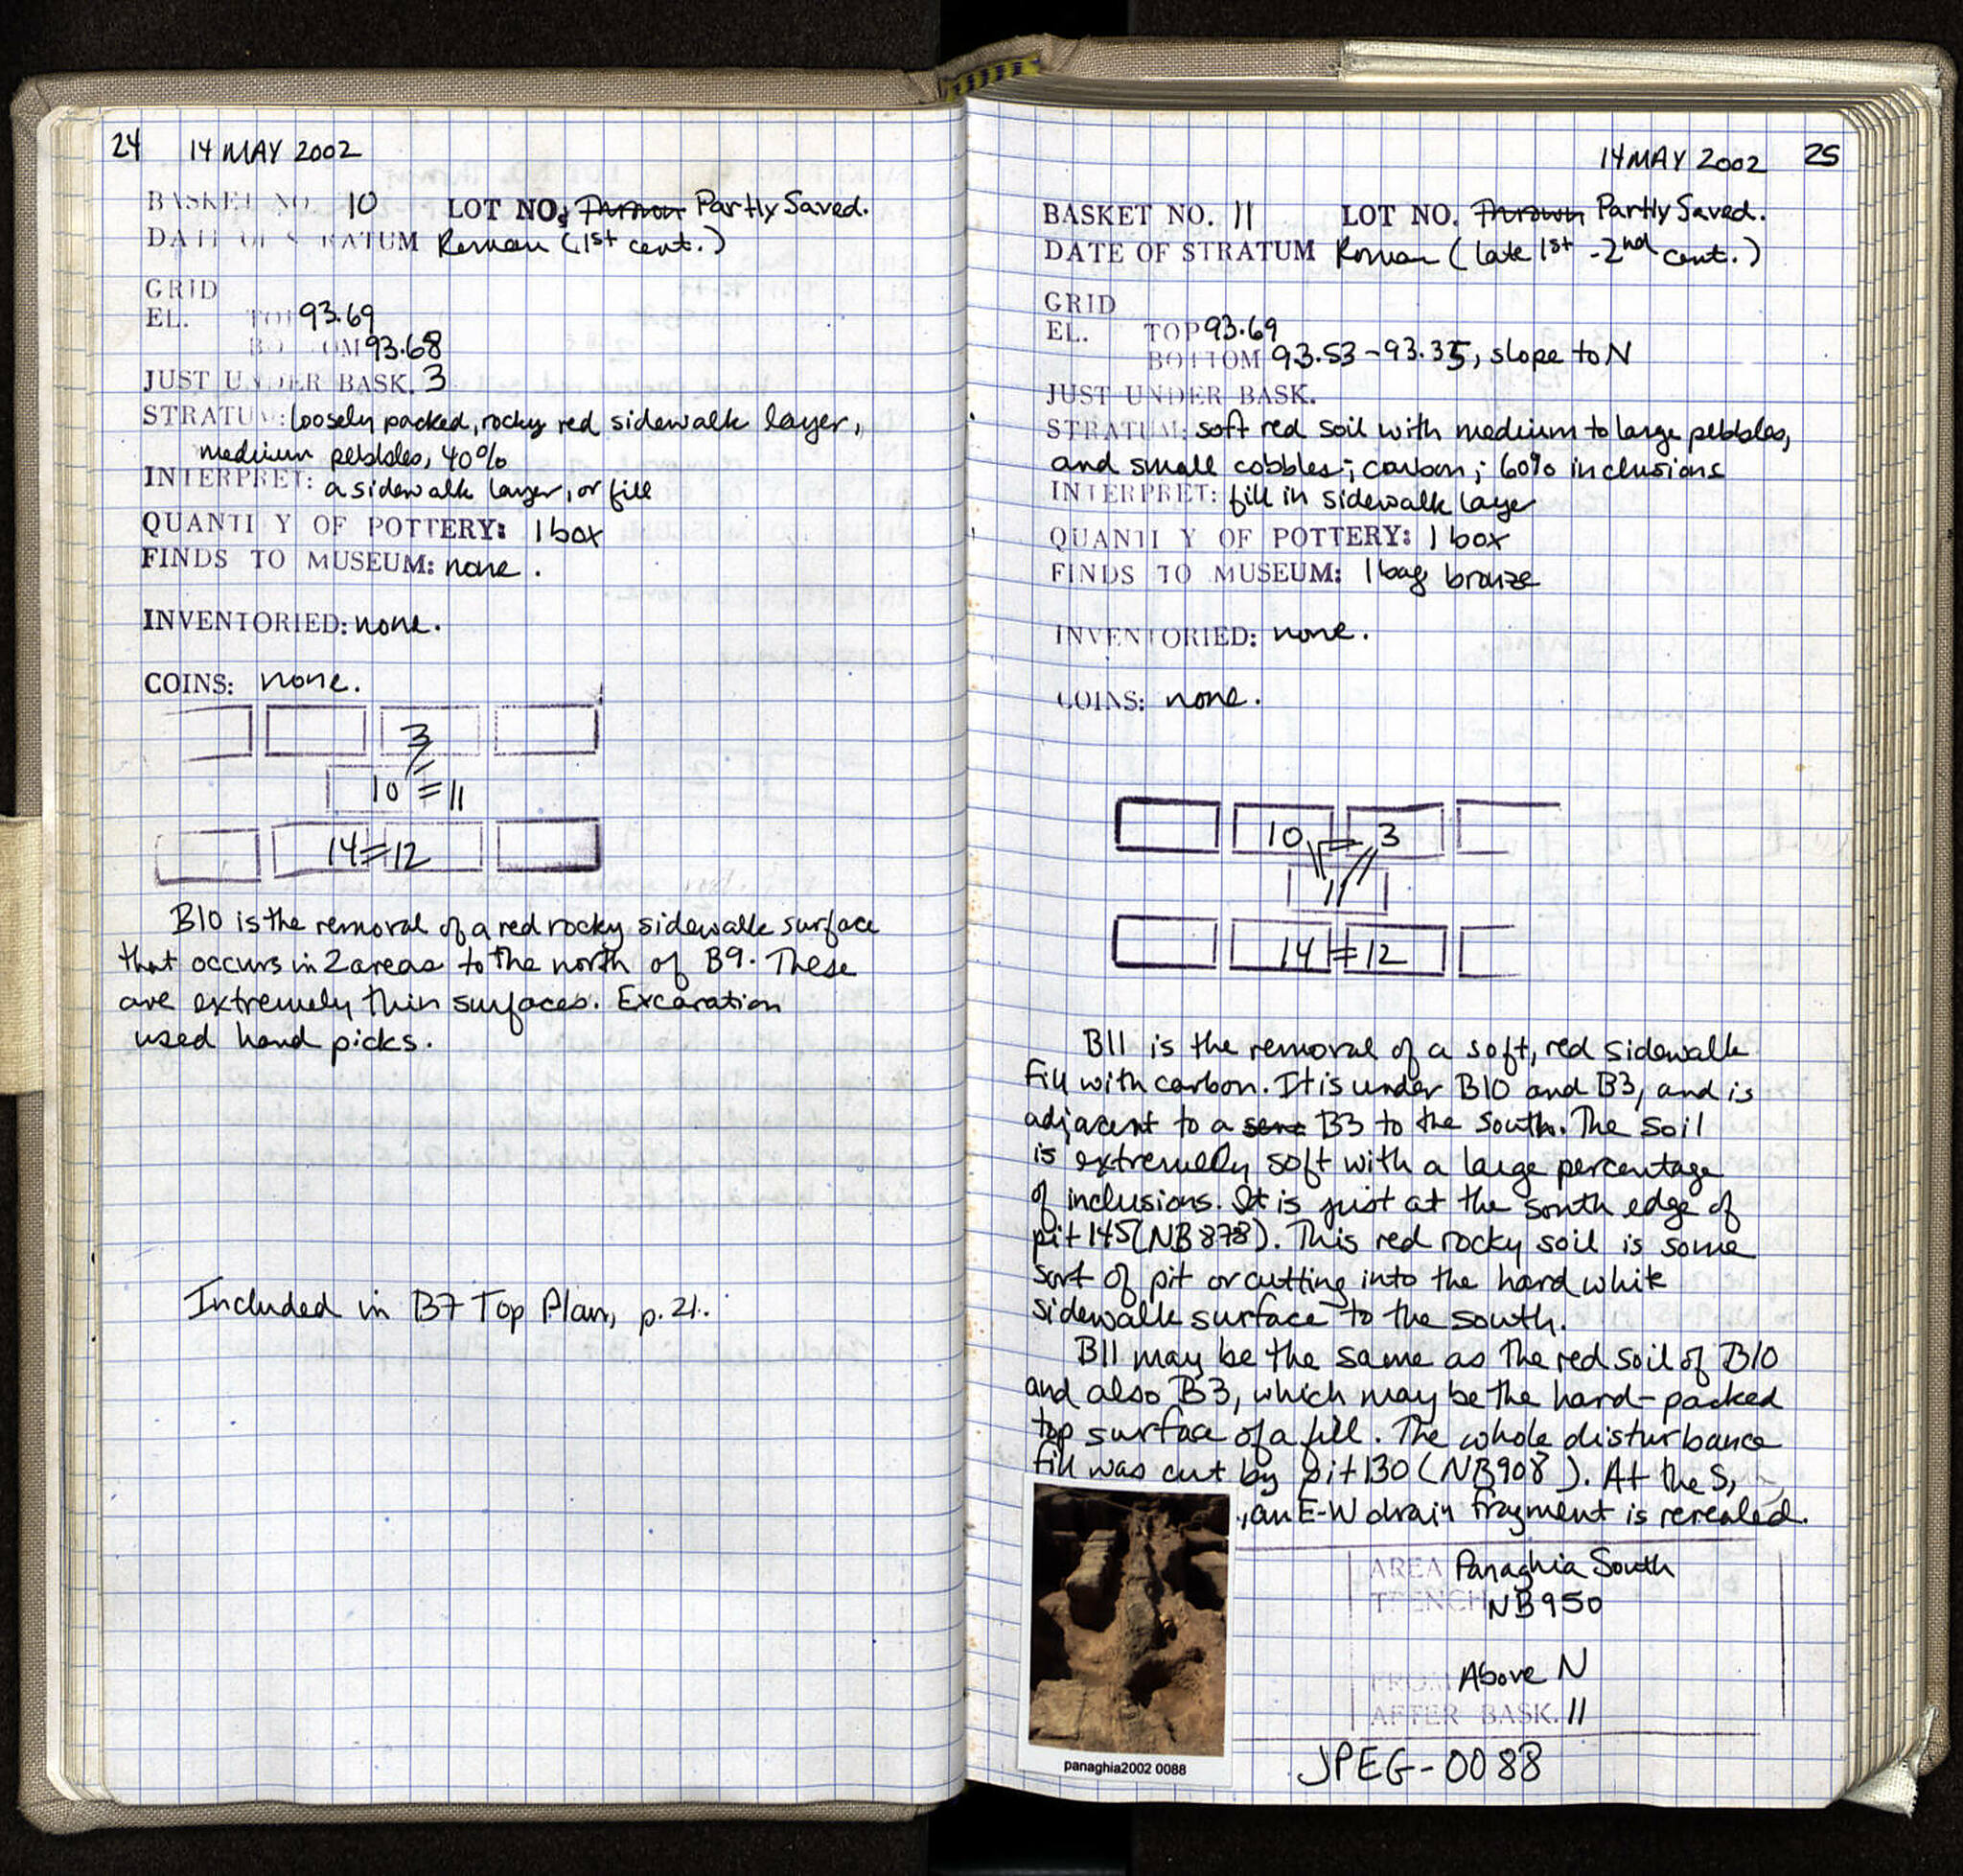 24 14 MAY 2002
BASKET NO. 10 LOT NO: Thrown Partly Saved.
DATE OF STRATUM Roman (1st cent.)
GRID
EL. TOP 93.69
BOTTOM 93.68
JUST UNDER BASK. 3
STRATUM: loosely packed, rocky red sidewalk layer,
medium pebbles, 40%
INTERPRET: a sidewalk layer, or fill
QUANTI Y OF POTTERY: 1 box
FINDS TO MUSEUM: none.
INVENTORIED: none.
COINS: none.
3
10 = 11
14 = 12
B10 is the removal of a red rocky sidewalk surface
that occurs in 2 areas to the north of B9. These
are extremely thin surfaces. Excavation
used hand picks.
Included in B7 Top Plan, p. 21.
14 MAY 2002 25
BASKET NO. 11 LOT NO. Thrown Partly Saved.
DATE OF STRATUM Roman (late 1st - 2nd cent.)
GRID
EL. TOP 93.69
BOTTOM 93.53 - 93.35, slope to N
JUST UNDER BASK.
STRATUM: soft red soil with medium to large pebbles,
and small cobbles; carbon; 60% inclusions
INTERPRET: fill in sidewalk layer
QUANTI Y OF POTTERY: 1 box
FINDS TO MUSEUM: 1 bag bronze
INVENTORIED: none.
COINS: none.
10 = 3
11
14 = 12
B11 is the removal of a soft, red sidewalk
fill with carbon. It is under B10 and B3, and is
adjacent to a B3 to the south. The soil
is extremely soft with a large percentage
of inclusions. It is just at the south edge of
pit 145 (NB 878). This red rocky soil is some
sort of pit or cutting into the hard white
sidewalk surface to the south.
B11 may be the same as the red soil of B10
and also B3, which may be the hard-packed
top surface of a fill. The whole disturbance
fill was cut by pit 130 (NB908). At the S,
, an E-W drain fragment is revealed.
AREA Panaghia South
TRENCH NB950
FROM Above N
AFTER BASK. 11
panaghia2002 0088
JPEG-0088